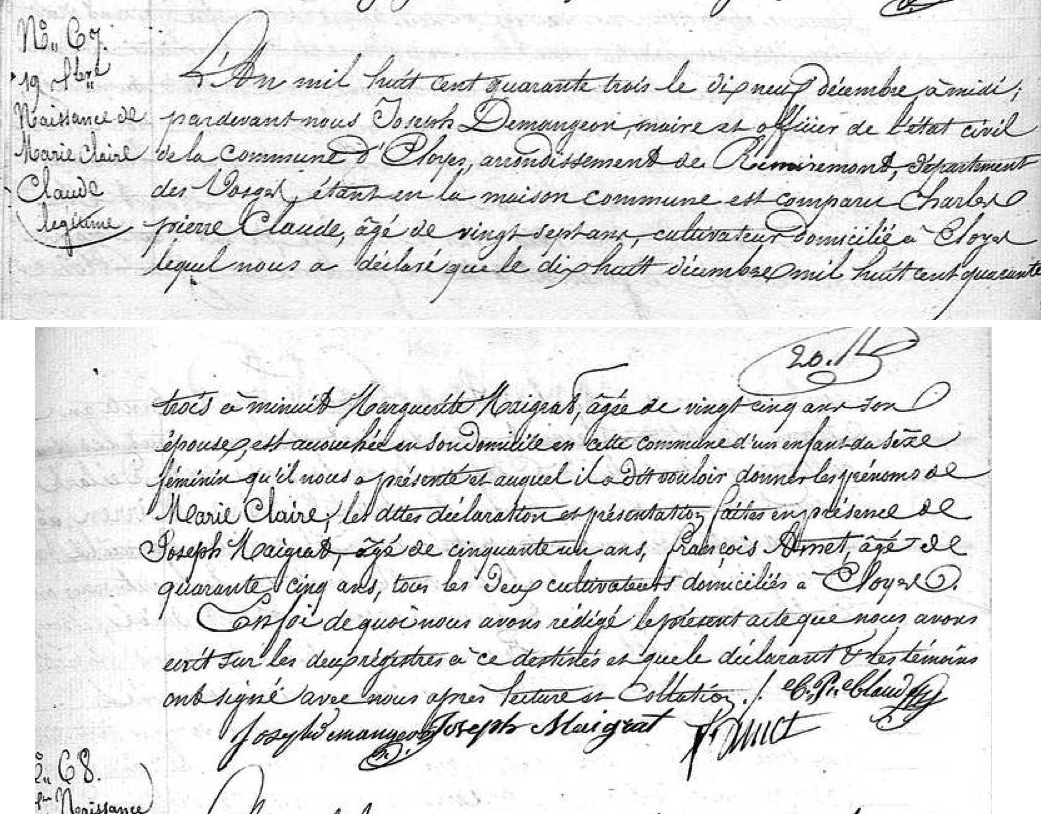 N°. 67.
19 Xbre
Naissance de
Marie Claire
Claude
legitime
L'An mil huit cent quarante trois le dix neuf décembre à midi;
pardevant nous Joseph Demangeon, maire et officier de l'état civil
de la commune d'Eloyes, arrondissement de Remiremont, département
des Vosges, étant en la maison commune est comparu Charles
pierre Claude, âgé de vingt sept ans, cultivateur domicilié à Eloyes
lequel nous a déclaré que le dix huit décembre mil huit cent quarante
20.
trois à minuit Marguerite Maigrat, âgée de vingt cinq ans son
épouse, est accouchée en son domicile en cette commune d'un enfant du sexe
féminin qu'il nous a présenté et auquel il a dit vouloir donner les prénoms de
Marie Claire; les dites déclaration et présentation faites en présence de
Joseph Maigrat, âgé de cinquante un ans, françois Amet, âgé de
quarante cinq ans, tous les deux cultivateurs domiciliés à Eloyes.
En foi de quoi nous avons rédigé le présent acte que nous avons
ecrit sur les deux régistres à ce destinés et que le déclarant & les témoins
ont signé avec nous après lecture et Collation ./. C. Pre Claude
Joseph Demangeon Joseph Maigrat F. Amet
N°. 68.
Naissance